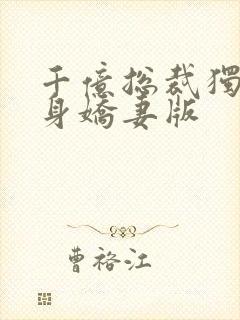 千億總裁獨
身嬌妻版
曹裕江